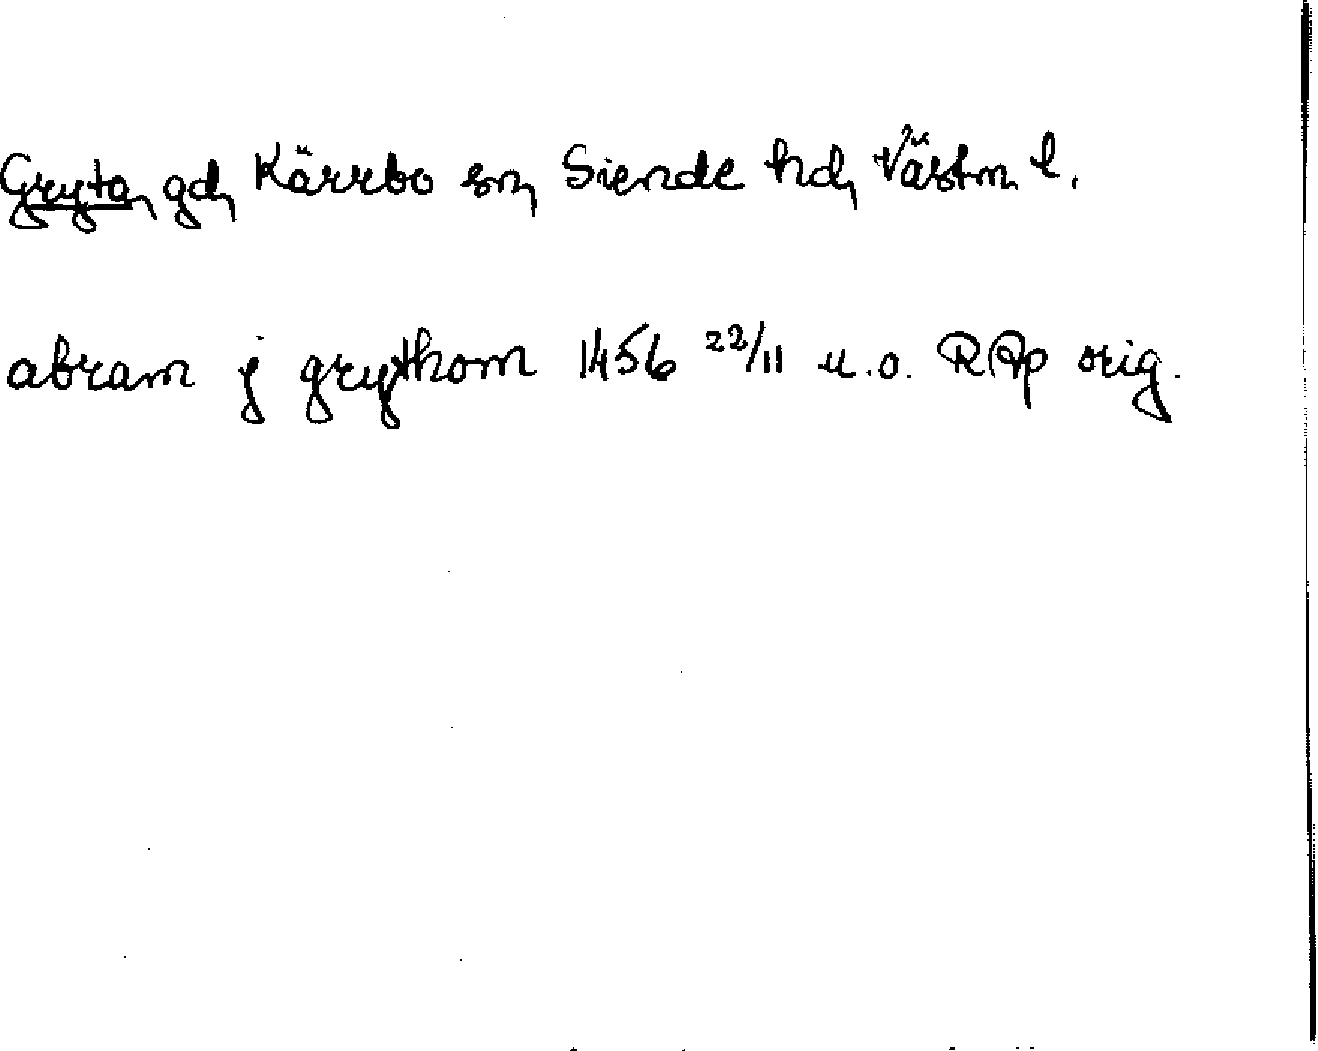 Gryta, gd, Kärrbo sn, Siende hd, Västm. l.
abram j grythom 1456 22/11 u.o. RAp orig.